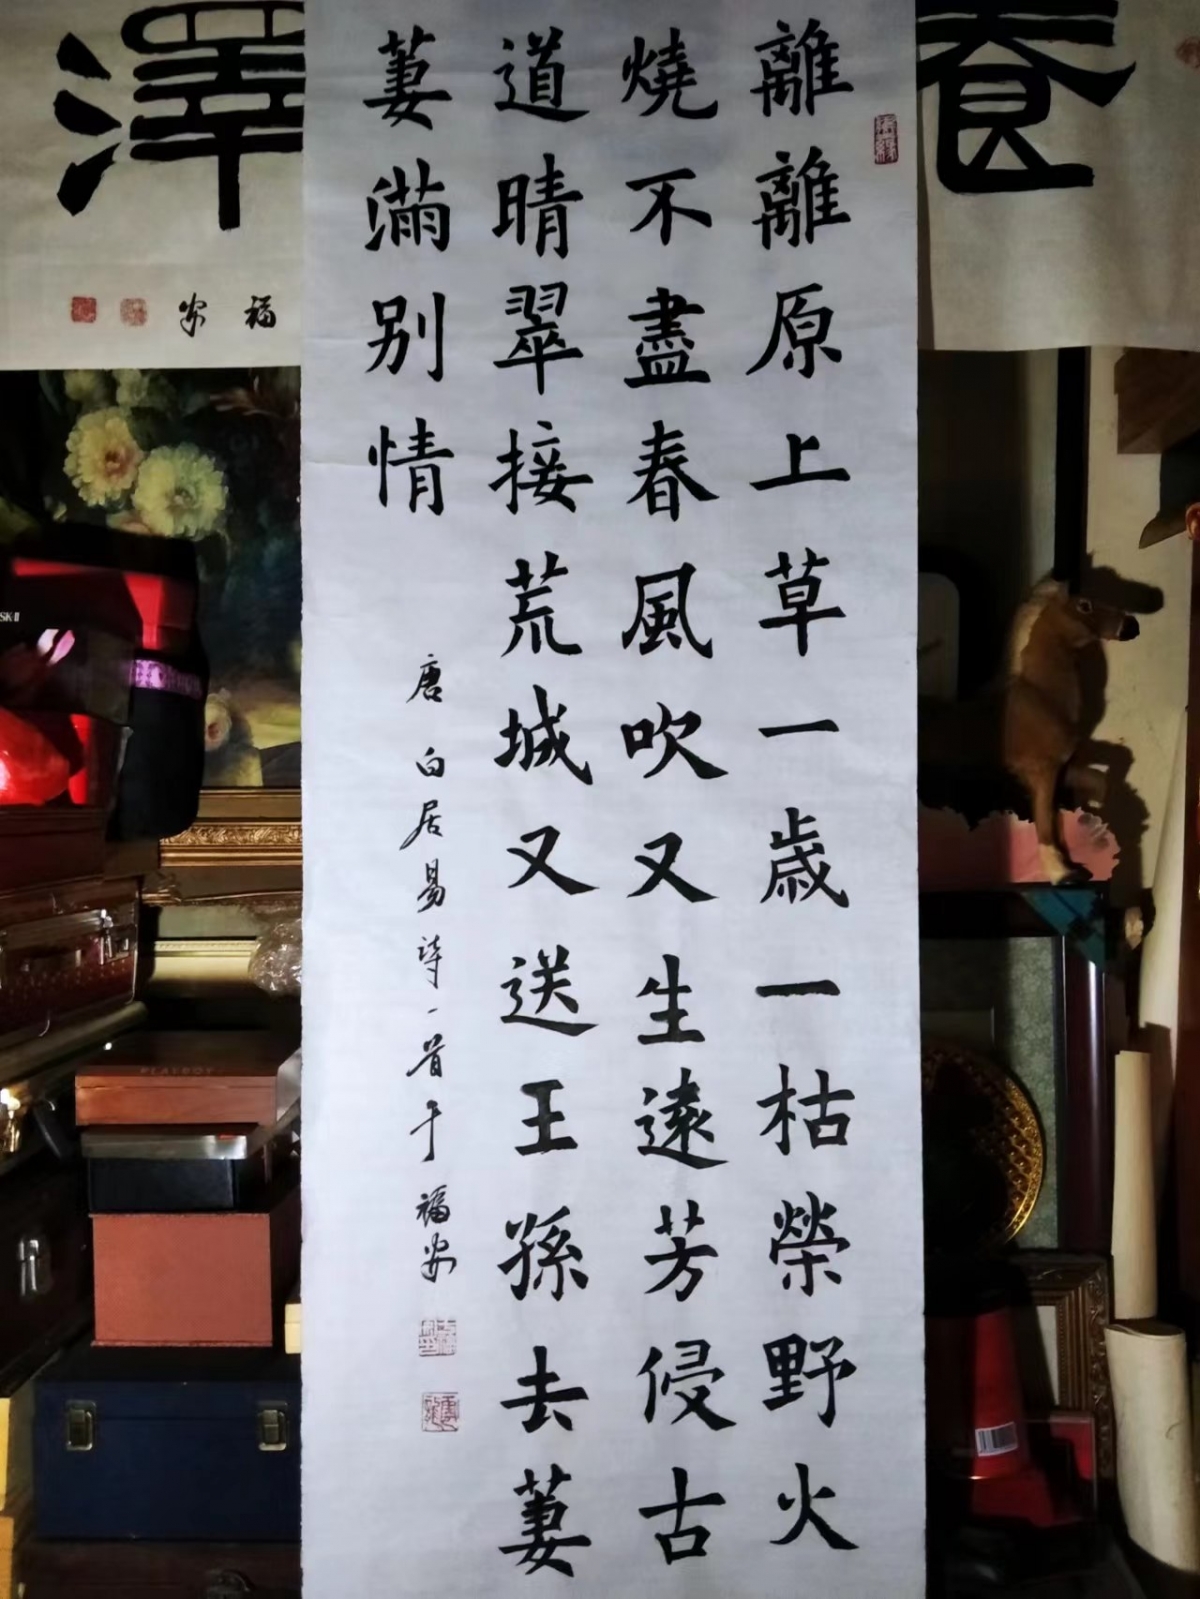 離離原上草一歲一枯榮野火
燒不盡春風吹又生遠芳侵古
道晴翠接荒城又送王孫去萋
萋滿别情
唐 白居易詩一首于福安
養
澤
福安
SK-II
PLAYBOY